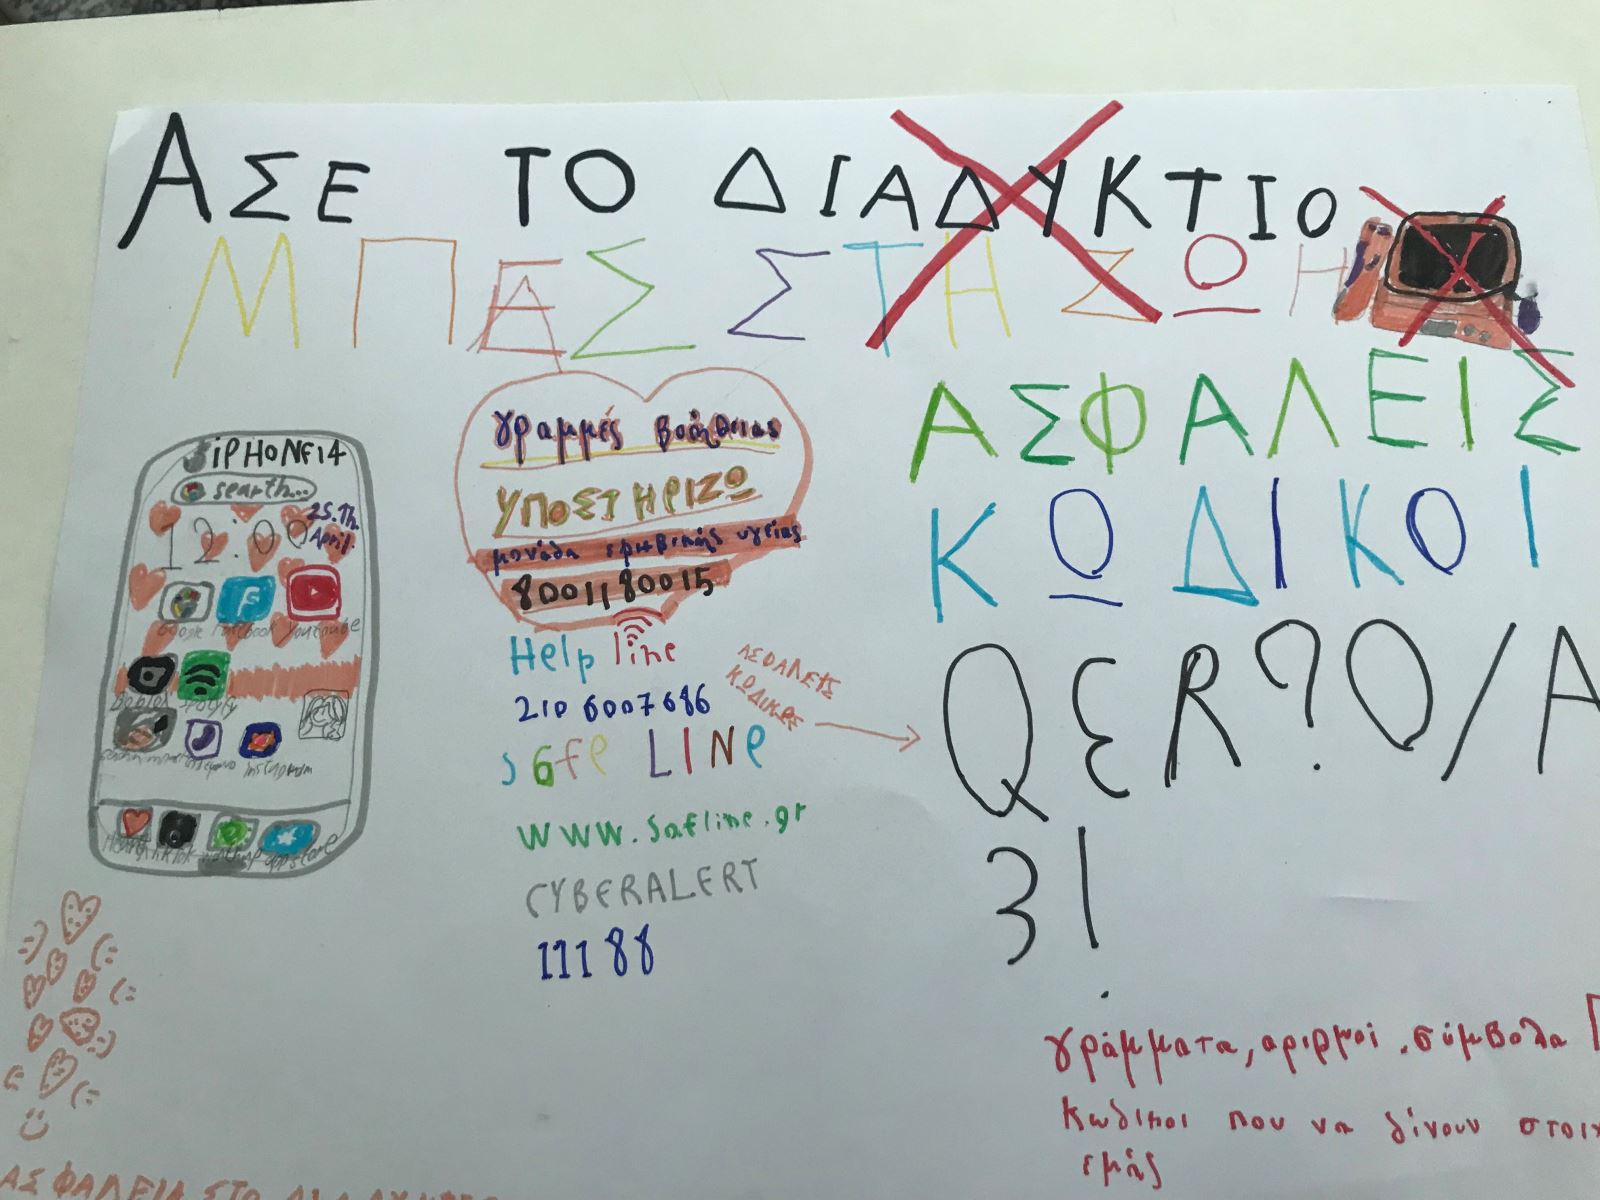 ΑΣΕ ΤΟ ΔΙΑΔΥΚΤΙΟ
ΜΠΕΣ ΣΤΗ ΖΩΗ
iPHONE14
search...
12:00
25.Th.
April.
Google Facebook Youtube
Roblox Spotify
instagram
Health tiktok appstore
γραμμές βοήθειας
ΥΠΟΣΤΗΡΙΖΩ
μονάδα εφηβικής υγείας
8001180015
Help line
210 6007686
safe LINe
www.safline.gr
CYBERALERT
11188
ΑΣΦΑΛΕΙΣ
ΚΩΔΙΚΟΙ
ΑΣΦΑΛΕΙΣ
QER?O/A
3!
γράμματα, αριθμοί, σύμβολα
κωδικοί που να δίνουν
εμάς